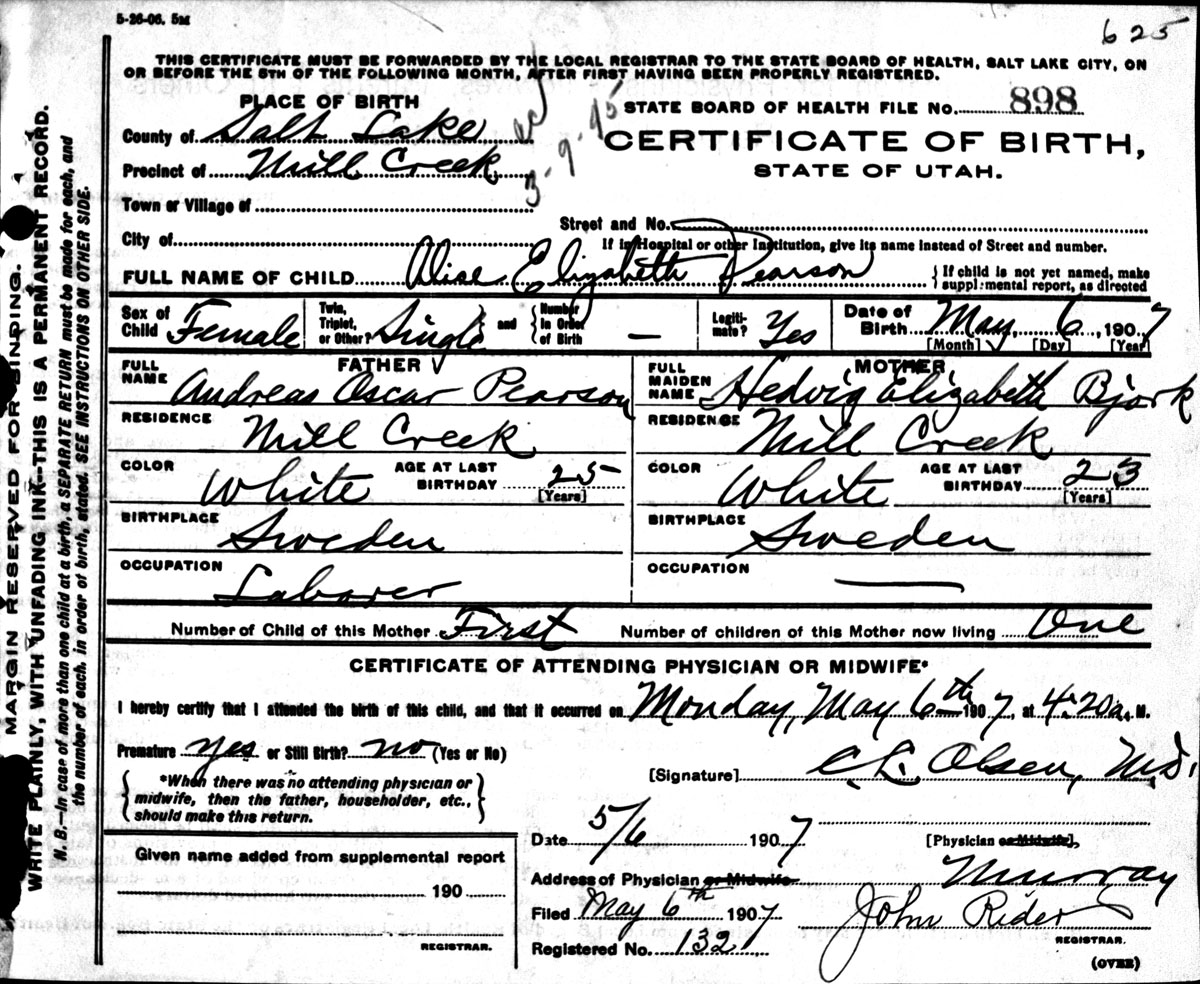 5-26-06. 5M
625
THIS CERTIFICATE MUST BE FORWARDED BY THE LOCAL REGISTRAR TO THE STATE BOARD OF HEALTH, SALT LAKE CITY, ON
OR BEFORE THE 5TH OF THE FOLLOWING MONTH, AFTER FIRST HAVING BEEN PROPERLY REGISTERED.
PLACE OF BIRTH
STATE BOARD OF HEALTH FILE No. 898
County of Salt Lake
3-9-45
CERTIFICATE OF BIRTH,
Precinct of Mill Creek
STATE OF UTAH.
Town or Village of
Street and No.
City of
If in Hospital or other Institution, give its name instead of Street and number.
FULL NAME OF CHILD Alise Elizabeth Pearson
{ If child is not yet named, make
supplemental report, as directed
Sex of Child Female
Twin, Triplet, or Other? Single } and { Number in Order of Birth —
Legiti-mate? Yes
Date of Birth May 6, 1907
[Month] [Day] [Year]
FATHER
MOTHER
FULL NAME Andreas Oscar Pearson
FULL MAIDEN NAME Hedvig Elizabeth Bjork
RESIDENCE Mill Creek
RESIDENCE Mill Creek
COLOR White AGE AT LAST BIRTHDAY 25 [Years]
COLOR White AGE AT LAST BIRTHDAY 23 [Years]
BIRTHPLACE Sweden
BIRTHPLACE Sweden
OCCUPATION Laborer
OCCUPATION —
Number of Child of this Mother First Number of children of this Mother now living One
CERTIFICATE OF ATTENDING PHYSICIAN OR MIDWIFE*
I hereby certify that I attended the birth of this child, and that it occurred on Monday, May 6th 1907, at 4:20 a. M.
Premature yes or Still Birth? no (Yes or No)
[Signature] C.L. Olsen, M.D.
{ *When there was no attending physician or
midwife, then the father, householder, etc.,
should make this return. }
Date 5/6 1907
[Physician or Midwife],
Given name added from supplemental report
190
REGISTRAR.
Address of Physician or Midwife Murray
Filed May 6th 1907 John Rider
REGISTRAR.
Registered No. 132
(OVER)
MARGIN RESERVED FOR BINDING.
WRITE PLAINLY, WITH UNFADING INK—THIS IS A PERMANENT RECORD.
N. B.—In case of more than one child at a birth, a SEPARATE RETURN must be made for each, and
the number of each, in order of birth, stated. SEE INSTRUCTIONS ON OTHER SIDE.